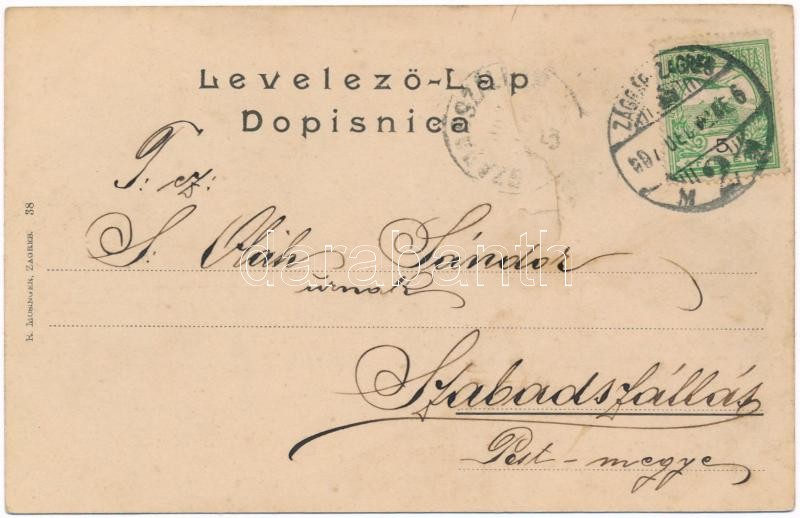 Levelező-Lap
Dopisnica
T. cz:
S. Oláh Sándor
úrnak
Szabadszállás
Pest-megye
R. MOSINGER, ZAGREB. 38
ZÁGRÁB ZAGREB
5
darabanth